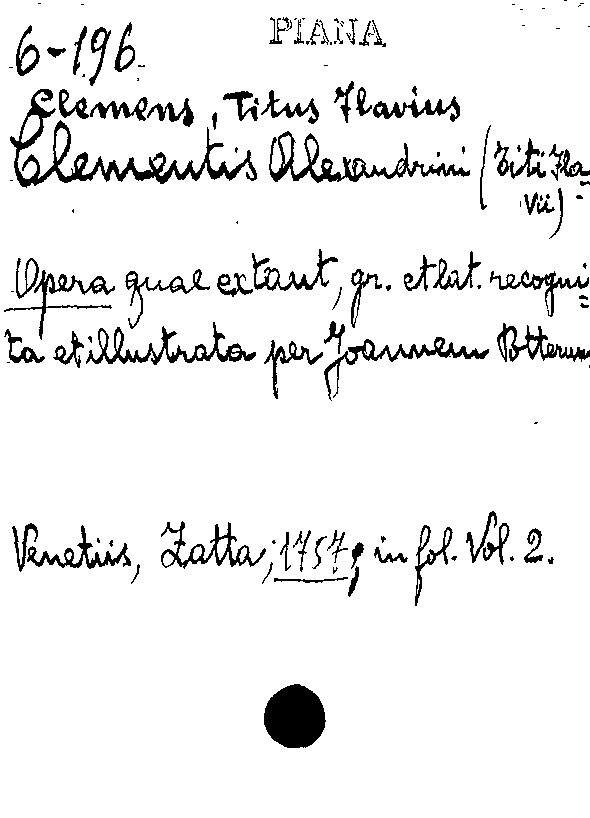 PIANA
6-196
Clemens, Titus Flavius
Clementis Alexandrini (Titi Fla=
vii)
Opera quae extant, gr. et lat. recogni=
ta et illustrata per Joannem Potterum,
Venetiis, Zatta, 1757, in fol. Vol. 2.